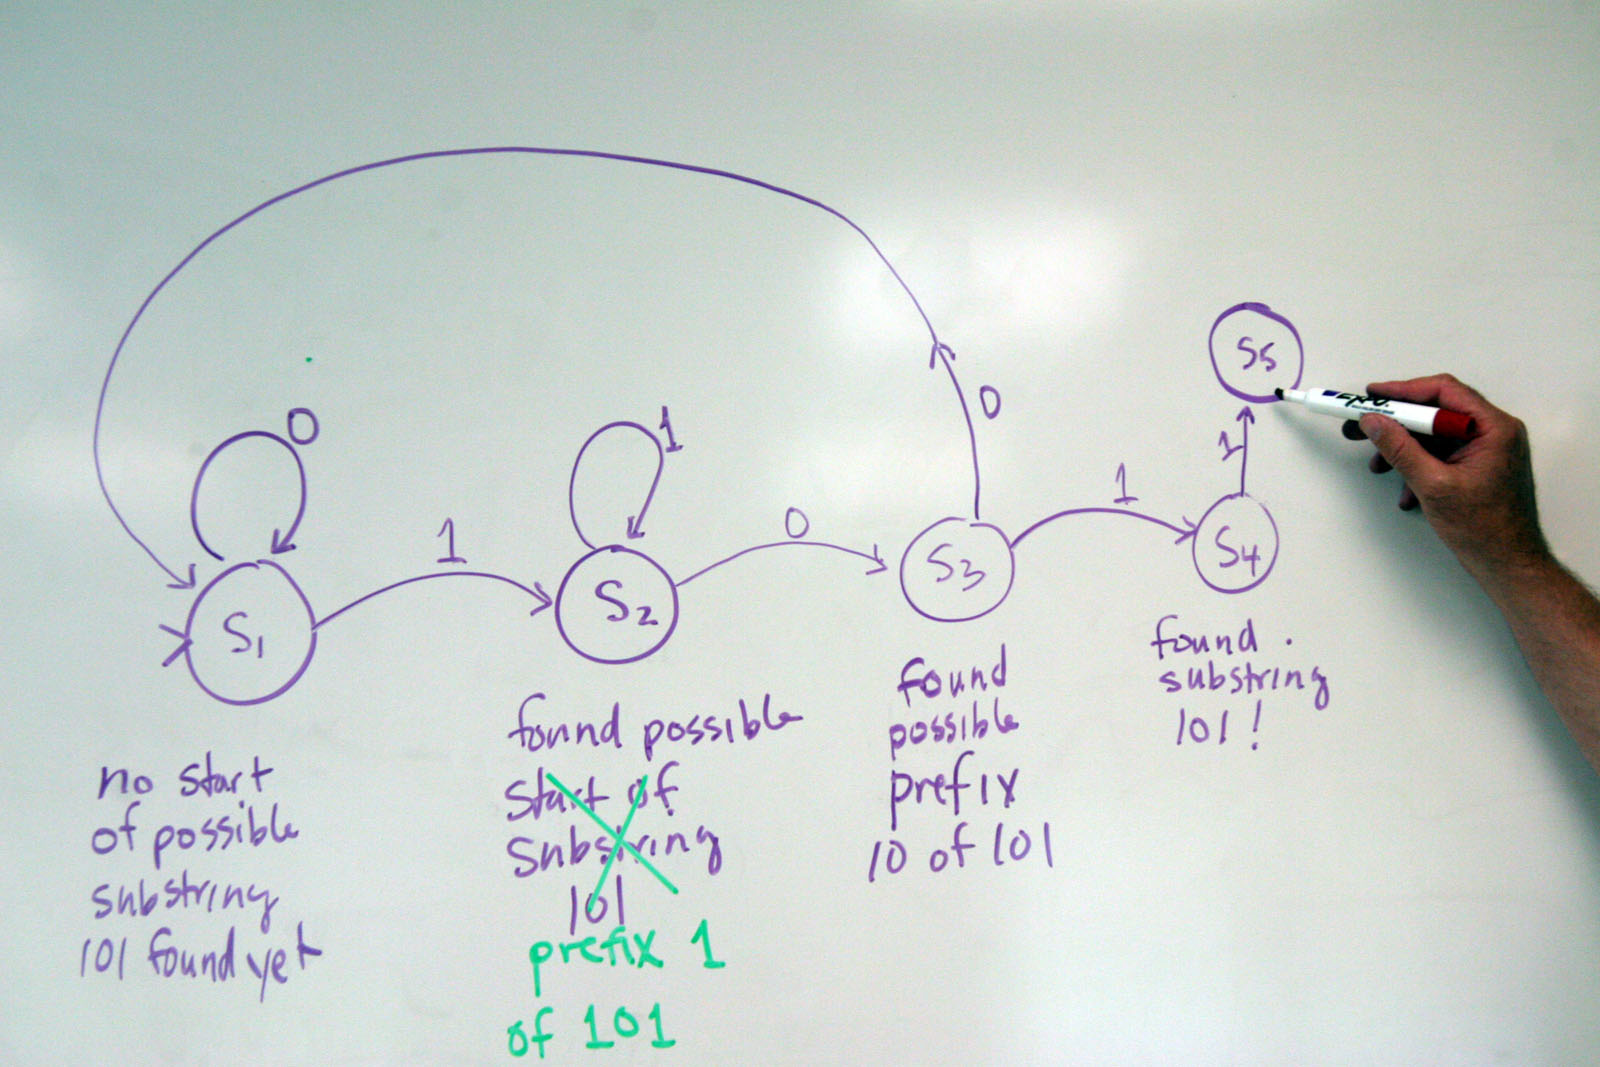 0
1
1
0
0
1
1
S1
S2
S3
S4
S5
EXPO
no start
of possible
substring
101 found yet
found possible
start of
substring
101
prefix 1
of 101
found
possible
prefix
10 of 101
found
substring
101!